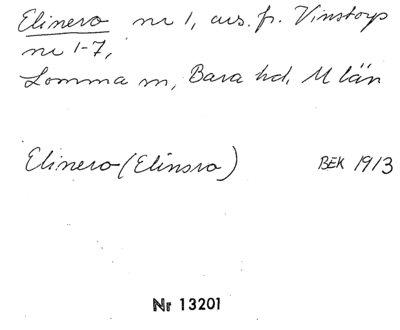 Elinero nr 1, avs. fr. Vinstorp
nr 1-7,
Lomma sn, Bara hd, M län
Elinero (Elinsro) BEK 1913
Nr 13201